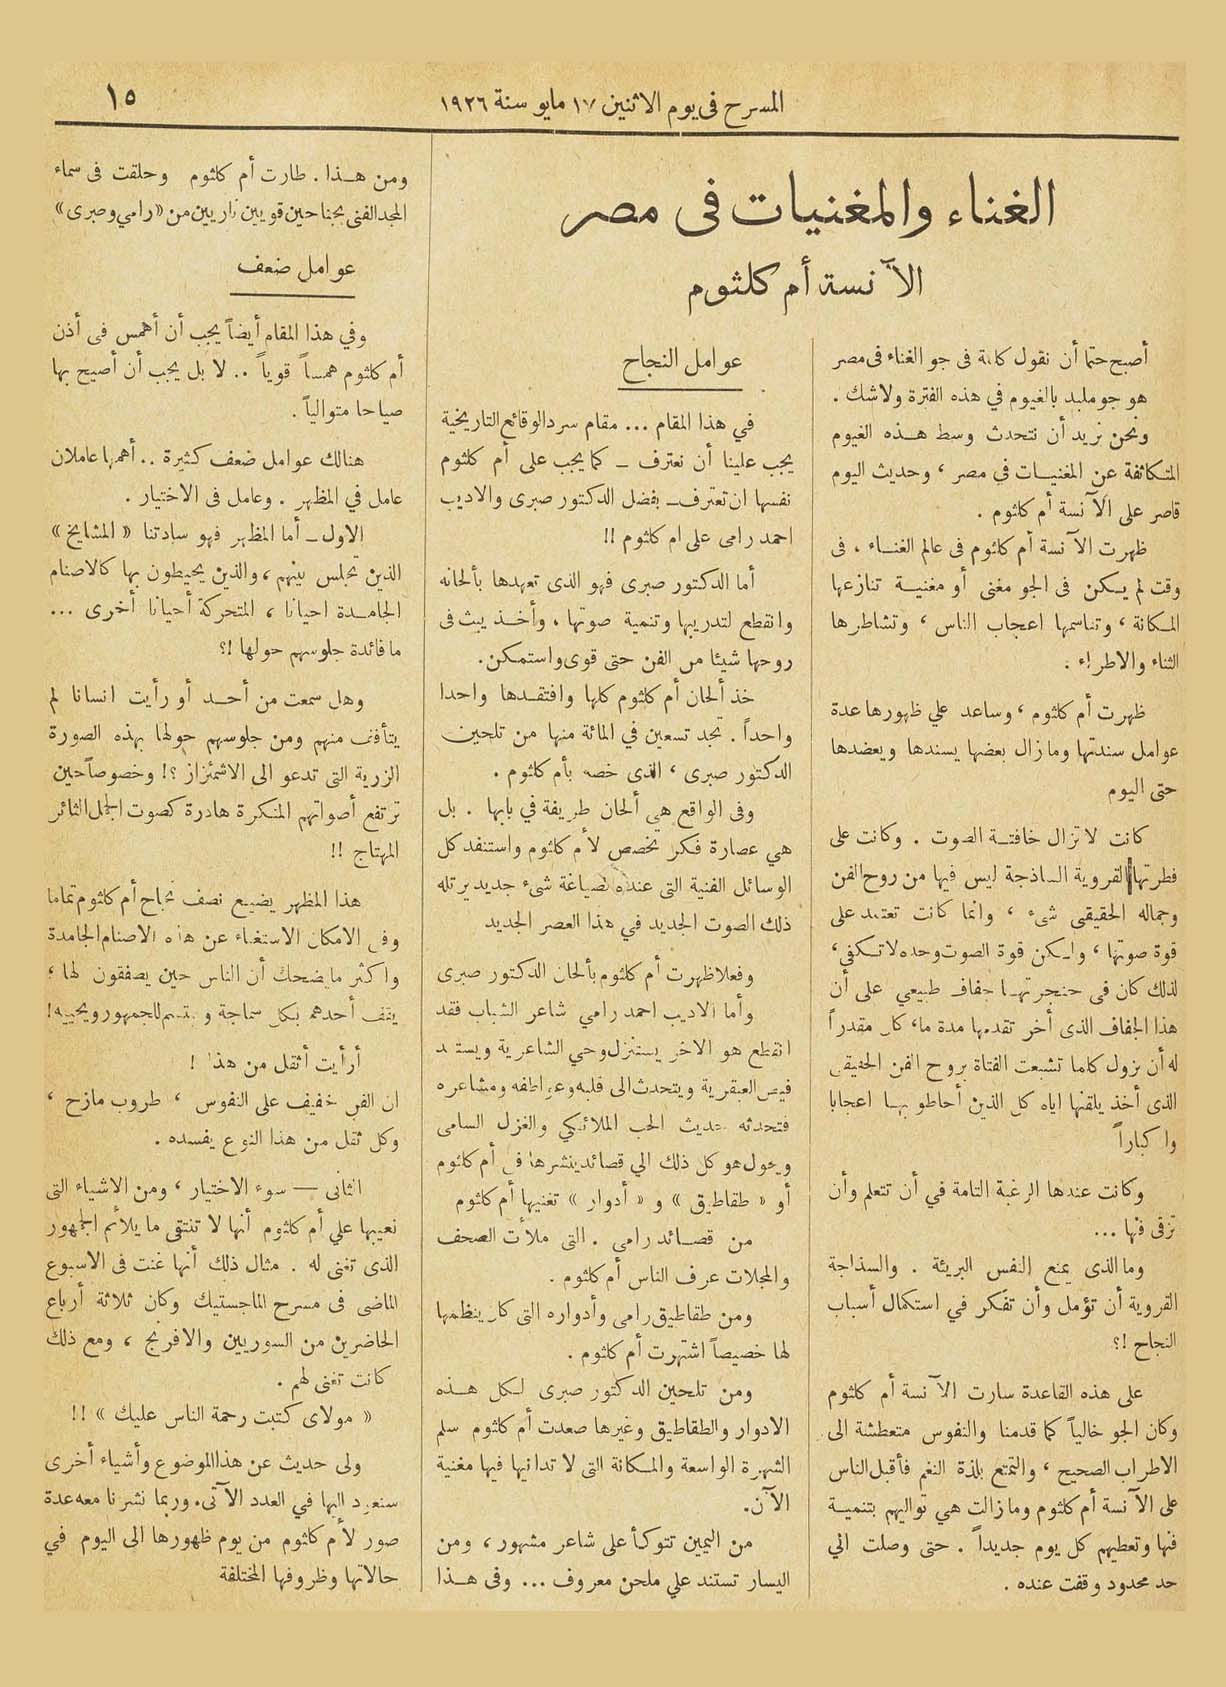 المسرح في يوم الاثنين ١٧ مايو سنة ١٩٢٦
١٥
الغناء والمغنيات في مصر
الآنسة أم كلثوم
أصبح حتما أن نقول كلمة في جو الغناء في مصر
هو جو ملبد بالغيوم في هذه الفترة ولاشك .
ونحن نريد أن نتحدث وسط هذه الغيوم
المتكاثفة عن المغنيات في مصر ، وحديث اليوم
قاصر على الآنسة أم كلثوم .
ظهرت الآنسة أم كلثوم في عالم الغناء ، في
وقت لم يكن في الجو مغنى أو مغنية تنازعها
المكانة ، وتناسمها اعجاب الناس ، وتشاطرها
الثناء والاطراء .
ظهرت أم كلثوم ، وساعد علي ظهورها عدة
عوامل سندتها ومازال بعضها يسندها ويعضدها
حتى اليوم
كانت لا تزال خافتة الصوت . وكانت على
فطرتها القروية الساذجة ليس فيها من روح الفن
وجماله الحقيقي شيء ، وانما كانت تعتمد على
قوة صوتها ، ولكن قوة الصوت وحده لاتكفي ،
لذلك كان في حنجرتها جفاف طبيعي على أن
هذا الجفاف الذى أخر تقدمها مدة ما ، كان مقدراً
له أن يزول كلما تشبعت الفتاة بروح الفن الحقيقي
الذى أخذ يلقنها اياه كل الذين أحاطو بها اعجابا
واكباراً
وكانت عندها الرغبة التامة في أن تتعلم وأن
ترقى فنها ...
وما الذى يمنع النفس البريئة . والسذاجة
القروية أن تؤمل وأن تفكر في استكمال أسباب
النجاح !؟
على هذه القاعدة سارت الآنسة أم كلثوم
وكان الجو خالياً كما قدمنا والنفوس متعطشة الى
الاطراب الصحيح ، والتمتع بلذة النغم فأقبل الناس
على الآنسة أم كلثوم ومازالت هي تواليهم بتنمية
فنها وتعطيهم كل يوم جديداً . حتى وصلت الي
حد محدود وقفت عنده .
عوامل النجاح
في هذا المقام ... مقام سرد الوقائع التاريخية
يجب علينا أن نعترف ــ كما يجب على أم كلثوم
نفسها ان تعترف ــ بفضل الدكتور صبرى والاديب
احمد رامى على ام كلثوم !!
أما الدكتور صبرى فهو الذى تعهدها بألحانه
وانقطع لتدريبها وتنمية صوتها ، وأخذ يبث في
روحها شيئا من الفن حتى قوى واستمكن.
خذ ألحان أم كلثوم كلها وافتقدها واحدا
واحداً . تجد تسعين في المائة منها من تلحين
الدكتور صبرى ، الذى خصه بأم كلثوم .
وفى الواقع هي ألحان طريفة في بابها . بل
هي عصارة فكر تخصص لأم كلثوم واستنفد كل
الوسائل الفنية التى عنده لصياغة شيء جديد يرتله
ذلك الصوت الجديد في هذا العصر الجديد
وفعلا ظهرت أم كلثوم بألحان الدكتور صبرى
وأما الاديب احمد رامي شاعر الشباب فقد
انقطع هو الاخر يستنزل وحي الشاعرية ويستمد
فيض العبقرية ويتحدث الى قلبه وعواطفه ومشاعره
فتحدثه حديث الحب الملائكي والغزل السامى
ويحول هو كل ذلك الي قصائد ينشرها في أم كلثوم
أو « طقاطيق » و « أدوار » تغنيها أم كلثوم
من قصائد رامى . التى ملأت الصحف
والمجلات عرف الناس أم كلثوم .
ومن طقاطيق رامى وأدواره التى كان ينظمها
لها خصيصاً اشتهرت أم كلثوم .
ومن تلحين الدكتور صبرى لكل هذه
الادوار والطقاطيق وغيرها صعدت أم كلثوم سلم
الشهرة الواسعة والمكانة التى لا تدانيها فيها مغنية
الآن.
من اليمين تتوكأ على شاعر مشهور ، ومن
اليسار تستند علي ملحن معروف ... وفى هذا
ومن هذا . طارت أم كلثوم وحلقت في سماء
المجد الفنى بجناحين قويين ناريين من « رامي وصبرى »
عوامل ضعف
وفي هذا المقام أيضاً يجب أن أهمس في أذن
أم كلثوم همساً قوياً .. لا بل يجب أن أصيح بها
صياحا متوالياً .
هنالك عوامل ضعف كثيرة .. أهمها عاملان
عامل في المظهر . وعامل في الاختيار .
الاول ــ أما المظهر فهو سادتنا « المشايخ »
الذين تجلس بينهم ، والذين يحيطون بها كالاصنام
الجامدة احيانا ، المتحركة أحيانا أخرى ...
ما فائدة جلوسهم حولها !؟
وهل سمعت من أحد أو رأيت انسانا لم
يتأفف منهم ومن جلوسهم حولها بهذه الصورة
الزرية التى تدعو الى الاشمئزاز ؟! وخصوصاً حين
ترتفع أصواتهم المنكرة هادرة كصوت الجمل الثائر
المهتاج !!
هذا المظهر يضيع نصف نجاح أم كلثوم تماما
وفي الامكان الاستغناء عن هذه الاصنام الجامدة
واكثر ما يضحك أن الناس حين يصفقون لها ،
يقف أحدهم بكل سماجة ويبتسم للجمهور ويحييه !
أرأيت أثقل من هذا !
ان الفن خفيف على النفوس ، طروب مازح ،
وكل ثقل من هذا النوع يفسده .
الثانى — سوء الاختيار ، ومن الاشياء التى
نعيبها علي أم كلثوم أنها لا تنتقى ما يلائم الجمهور
الذى تغنى له . مثال ذلك أنها غنت في الاسبوع
الماضى في مسرح الماجستيك وكان ثلاثة أرباع
الحاضرين من السوريين والافرنج ، ومع ذلك
كانت تغنى لهم .
« مولاى كتبت رحمة الناس عليك » !!
ولى حديث عن هذا الموضوع وأشياء أخرى
سنعود اليها في العدد الآتى. وربما نشرنا معه عدة
صور لأم كلثوم من يوم ظهورها الى اليوم في
حالاتها وظروفها المختلفة